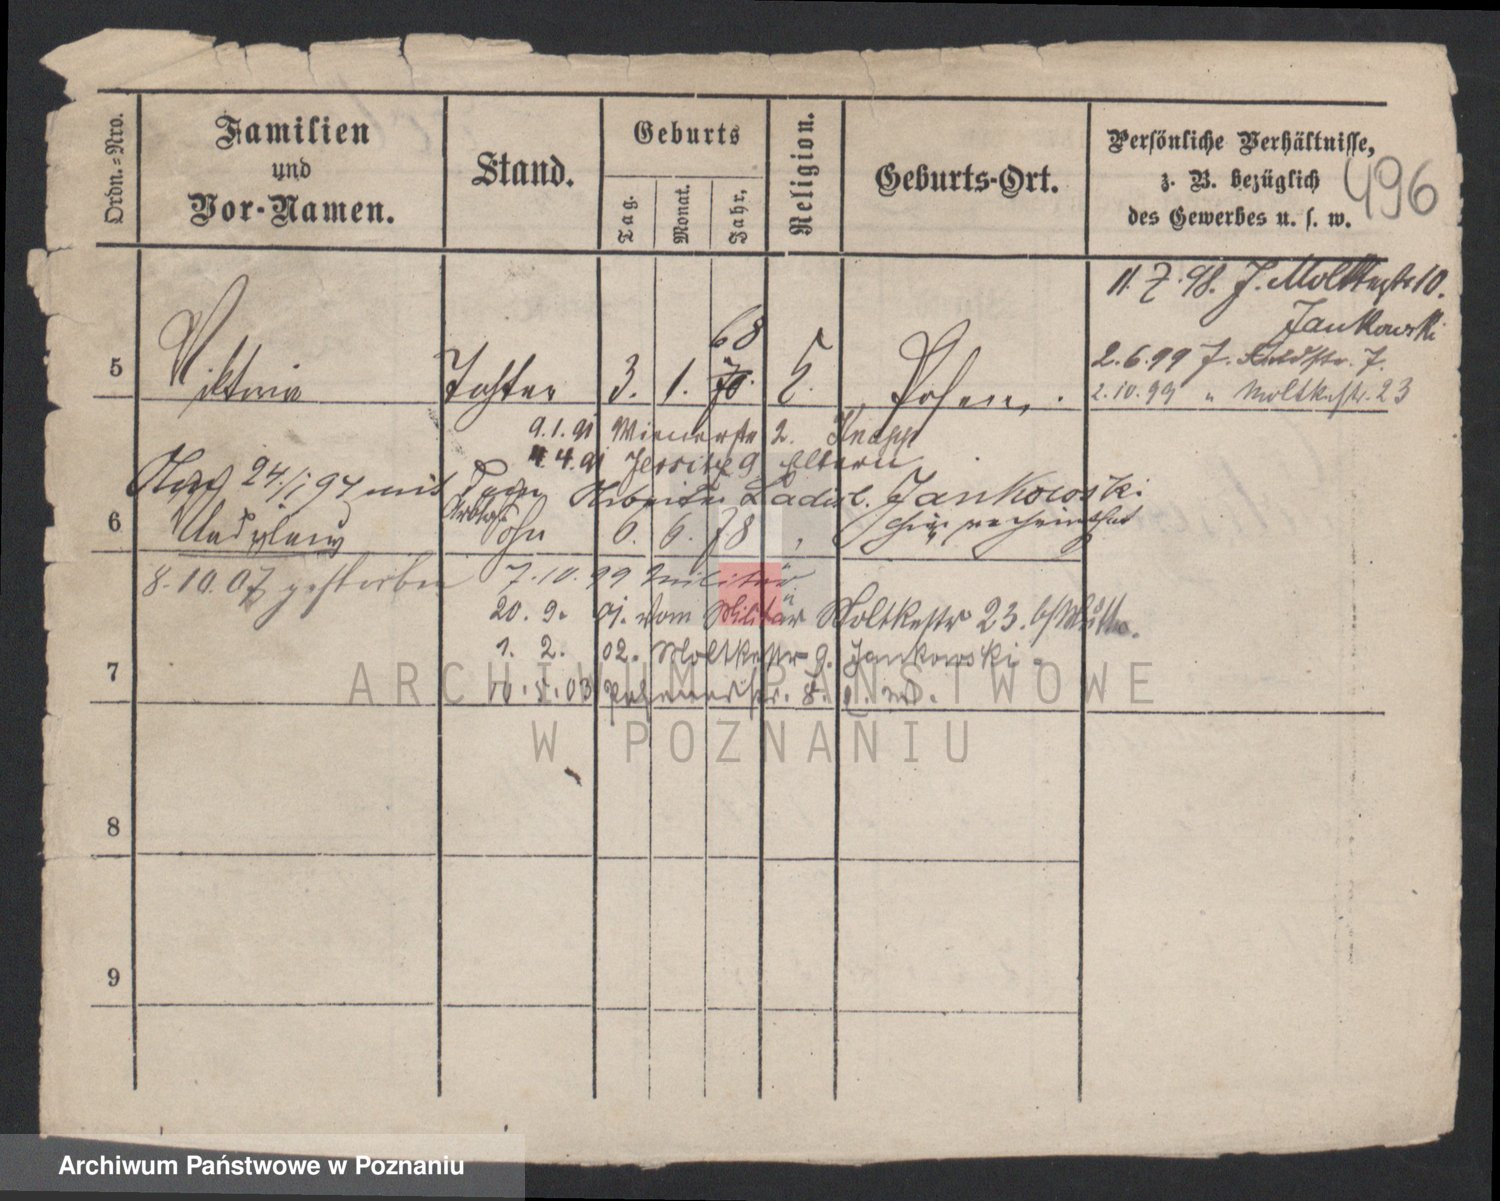 Ordn.=Nro.
Familien
und
Vor-Namen.
Stand.
Geburts
Tag.
Monat.
Jahr,
Religion.
Geburts-Ort.
Persönliche Verhältnisse,
z. B. bezüglich
des Gewerbes u. s. w.
496
11.7.98. J. Moltkestr 10.
Jankowski
68
5 Viktoria Tochter 3. 1. 70. k. Posen.
2.6.99 J. Feldstr. 7.
2.10.99 " Moltkestr. 23
9.1.91 Wienerstr 2. Knapp
4.4.91 Jersitz 9 Eltern
24/1 94 mit dem Arbeiter Ladisl. Jankowski
verheirathet
6 Wladyslaus Sohn 6. 6. 78 "
8.10.07 gestorben
7.10.99 Militär
20. 9. 01. vom Militär Moltkestr 23. b/Mutter.
1. 2. 02. Moltkestr 9. Jankowski
7
10.5.03 8.
8
9
ARCHIWUM PAŃSTWOWE
W POZNANIU
Archiwum Państwowe w Poznaniu